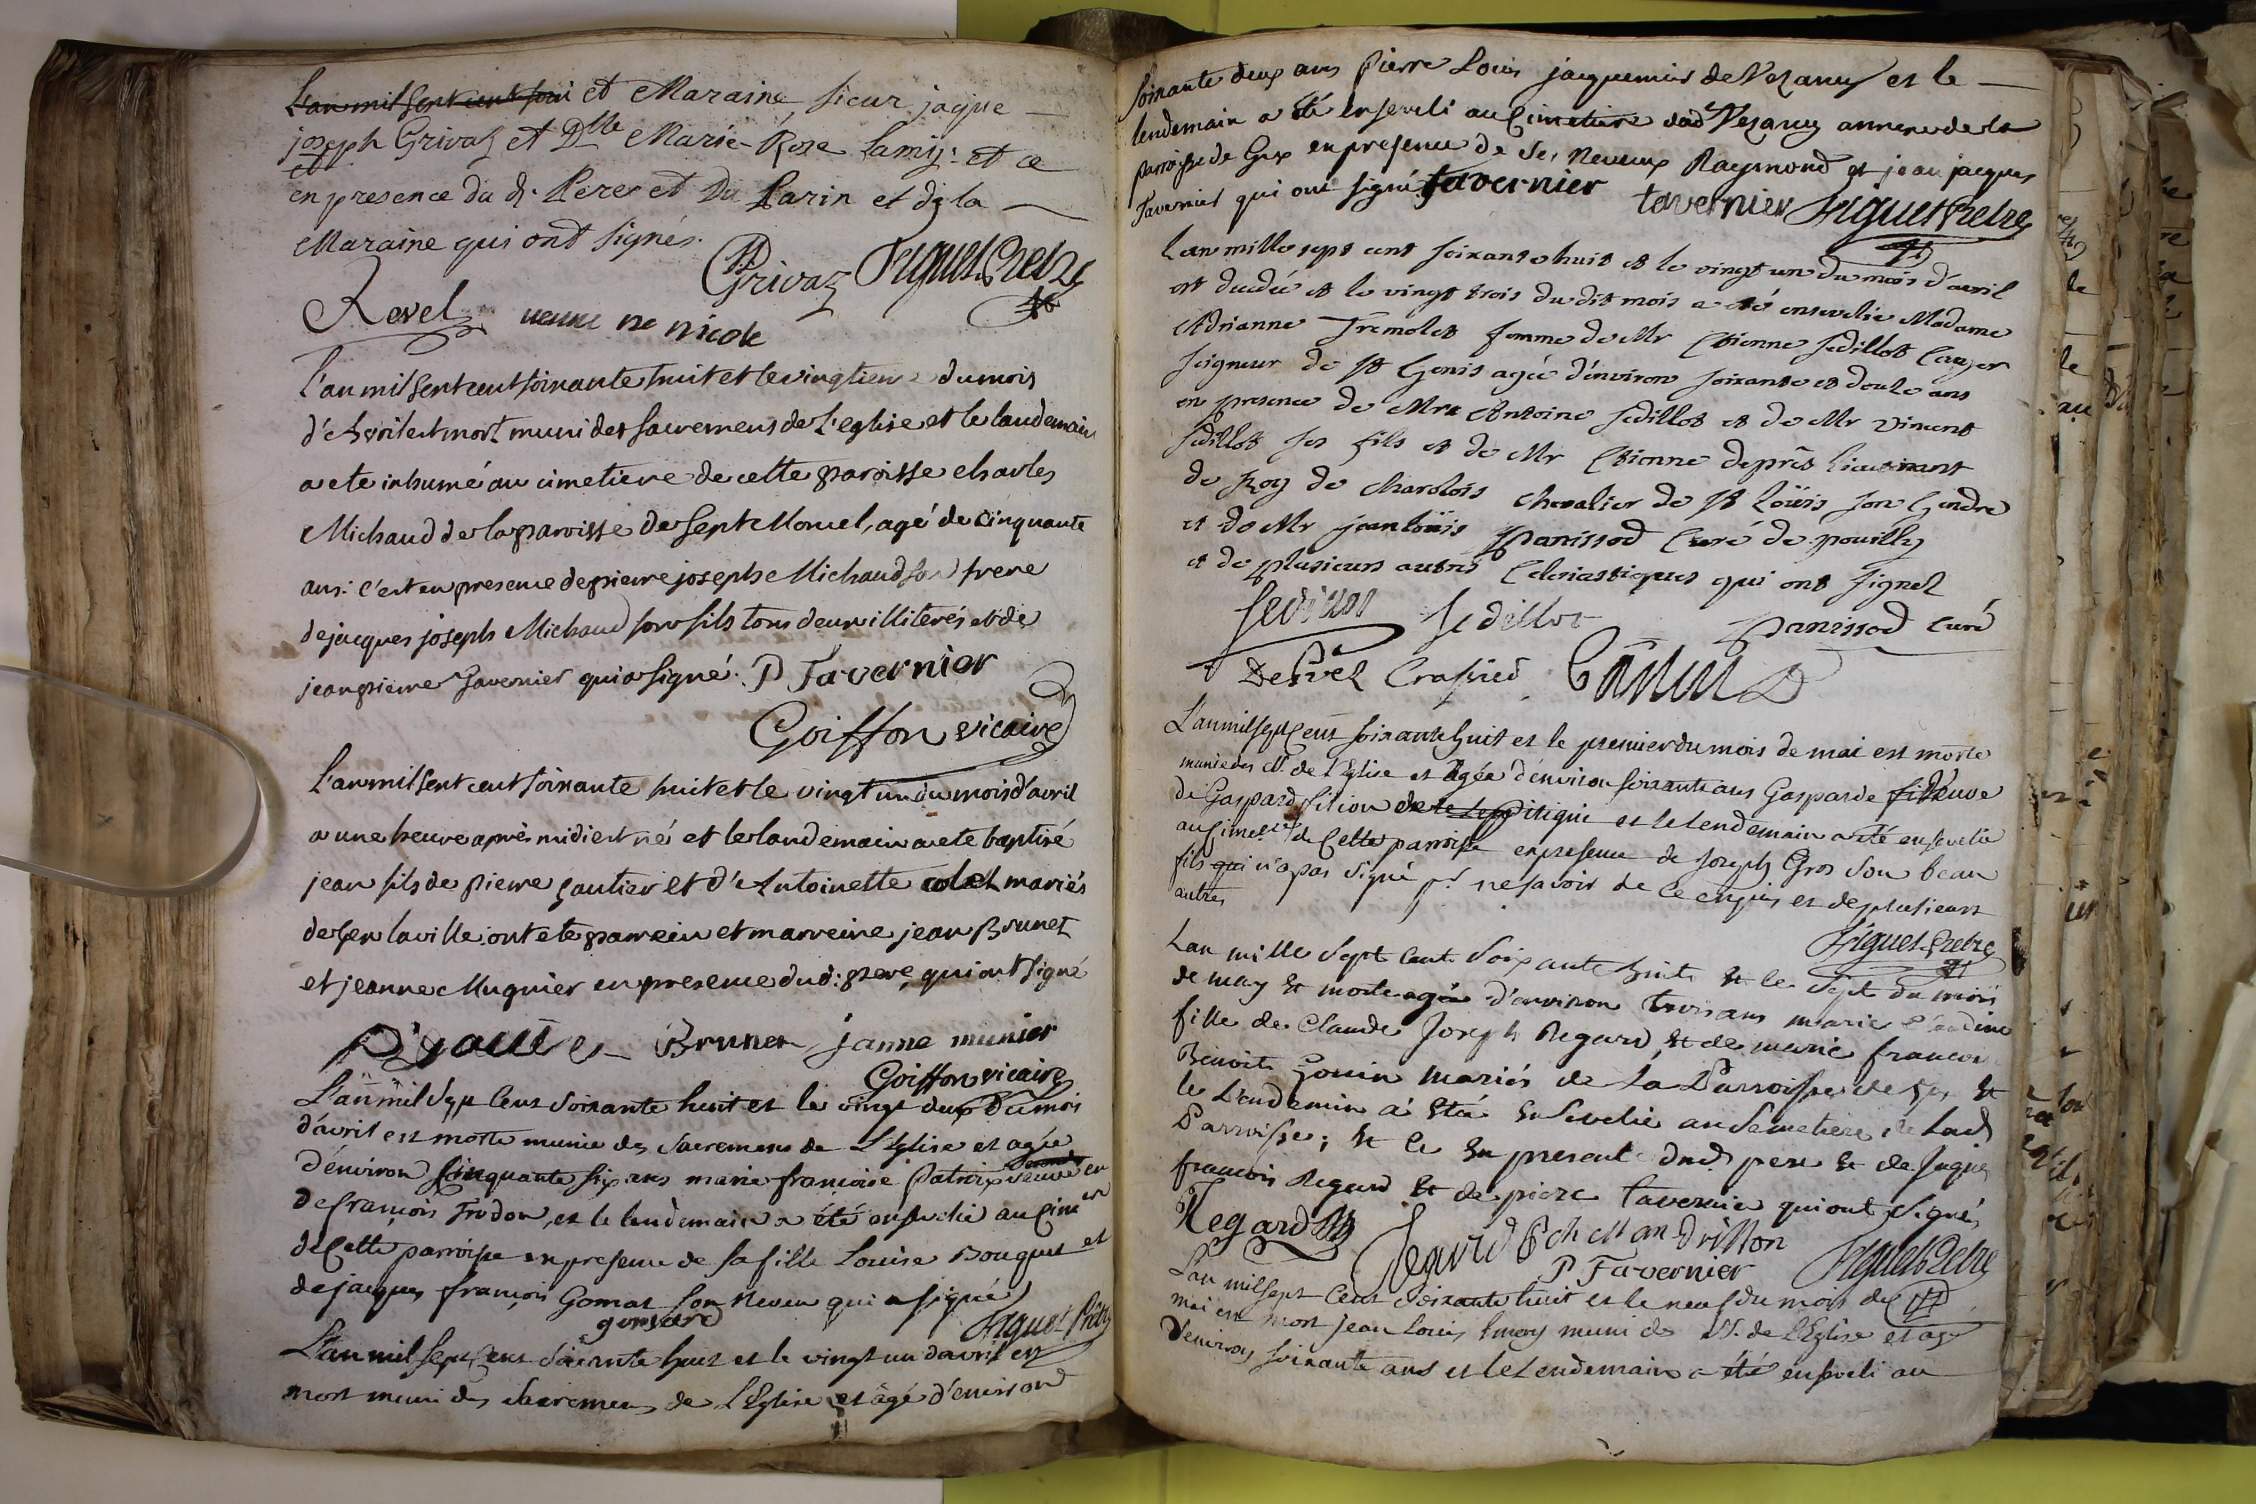 L'an mil sept cent soi et Maraine, sieur jaque
joseph Grivaz et Dlle Marie-Rose Lamy: et ce
et
en presence du d. Pere et Du Parin et de la
Maraine qui ont signés.
P Grivaz Figuet Pretre
Revel
nicole
L'an mil sept cent soixante huit et le vingtieme du mois
d'Avril est mort muni des sacremens de l'eglise et le landemain
a eté inhumé au cimetiere de cette paroisse charles
Michaud de la paroisse de Septmoncel, agé de cinquante
ans: c'est en presence de pierre joseph Michaud son frere
de jacques joseph Michaud son fils tous deux illiterés et de
jean pierre Tavernier qui a signé. P Tavernier
Goiffon vicaire
L'an mil sept cent soixante huit et le vingt un du mois d'avril
a une heure après midi est né et le landemain a eté baptisé
jean fils de pierre gautier et d'Antoinette colet mariés
de Gex la ville; ont eté parrein et marreine jean Brunet
et jeanne Mugnier en presence du d: pere, qui ont signé
Brunet janne munier
Goiffon vicaire
L'an mil sept cent soixante huit et le vingt deux du mois
d'avril est morte munie des Sacremens de L'Eglise et agée
d'environ cinquante six ans marie francoise Patroix veuve en
secondes
de françois Frodon, et le lendemain a été ensevelie au Cime
de Cette parroisse en presence de sa fille Louise Bouquet et
de jacques françois Gomar son Neveu qui a signé
Figuet Prêtre
L'an mil sept cens soixante huit et le vingt un d'avril est
mort muni des Sacremens de L'Eglise et âgé d'environ
soixante deux ans Pierre Louis jacquemier de Vezancy et le
lendemain a été enseveli au Cimetiere dud Vezancy annexe de la
parroisse de Gex en presence de ses Neveux Raymond et jean jacques
Tavernier qui ont signé tavernier
tavernier Figuet Pretre
L'an mille sept cent soixante huit et le vingt un du mois d'avril
est decedée et le vingt trois du dit mois a eté ensevelie Madame
Adrianne Tremolet femme de Mr Etienne Sedillot
seigneur de St Genis agée d'environ soixante et douze ans
en presence de Mrs Antoine Sedillot et de Mr vincent
Sedillot ses fils et de Mr Etienne deprêz Lieutenant
de Roy de charolois chevalier de St Loüis son Gendre
et de Mr jean loüis panissod Curé de pouilly
et de plusieurs autres Eclesiastiques qui ont signez
Sedillot Sedillot
panissod curé
Deprez Crassied
L'an mil sept Cent soixante huit et le premier du mois de mai est morte
munie des St. de l'Eglise et Agée d'environ soixante ans Gasparde veuve
de Gaspard Sition de et le lendemain a été ensevelie
au Cimetre de Cette parroisse en presence de joseph Gros son beau
fils qui n'a pas signé pr. ne savoir de ce enquis et de plusieurs
autres
Figuet Pretre
Lan mille Sept Cent Soixante huit et le Sept du mois
de may et morte agée d'environ trois ans marie Claudine
fille de Claude Joseph Regard et de marie francoi
Benoite Gonin mariés de la Parroisse de Gex et
le Lendemin a été Ensevelie au Semetiere de Lad
Parroisse; et ce En present dud pere et de Juques
francois Regard et de piere tavernie qui ont signés
Regard
Regard P ch Mandrillon
P Tavernier Figuet Pretre
L'an mil sept Cent Soixante huit et le neuf du mois de
mai est mort jean Louis Emery muni des SS. de L'Eglise et agé
d'environ soixante ans et le Lendemain a été enseveli au